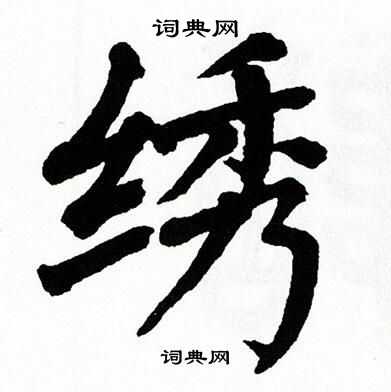 词典网
绣
词典网